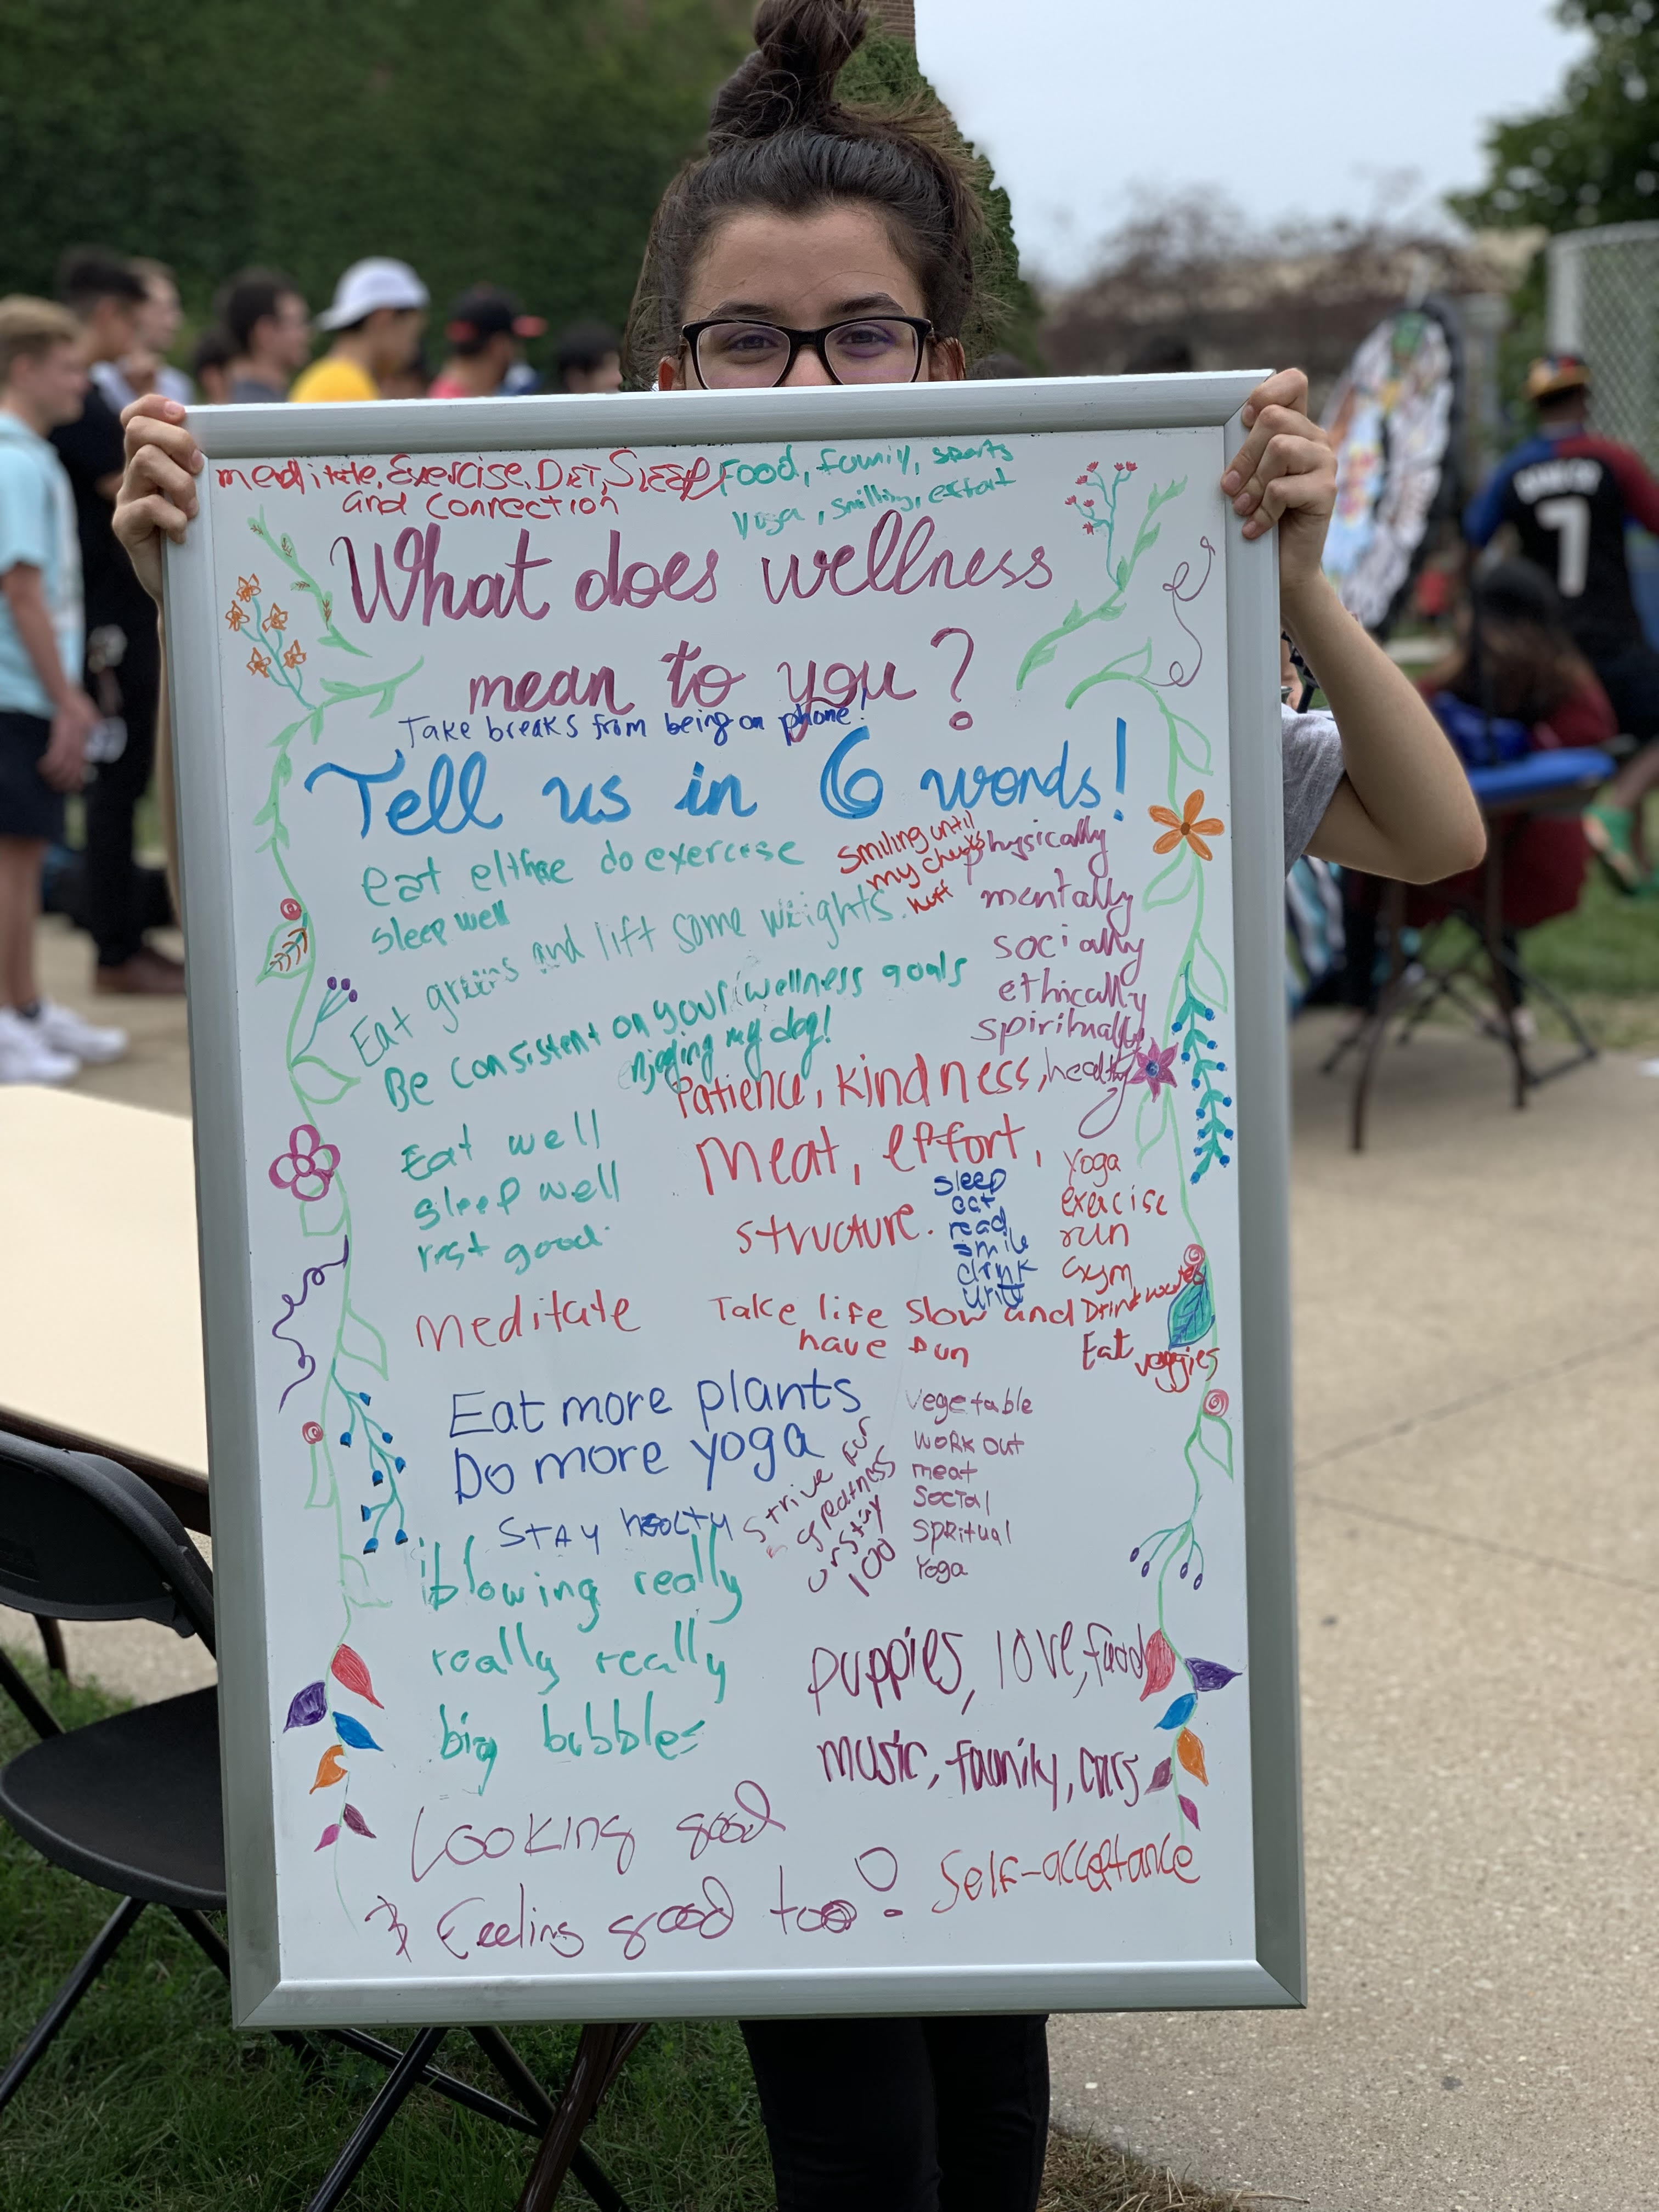 meditate, Exercise, DIET, SLEEP
and connection
Food, family, sports
Yoga, smilling, effort
What does wellness
mean to you?
Take breaks from being on phone!
Tell us in 6 words!
eat do exercise
sleep well
smiling until
my cheeks
physically
mentally
socially
ethically
spiritually
healthy
Eat greens and lift some weights.
Be consistent on your wellness goals
enjoying my day!
Patience, kindness,
Meat, effort,
structure.
Eat well
sleep well
rest good
sleep
eat
read
smile
drink
yoga
exercise
run
Gym
Drink water
Eat veggies
Meditate
Take life slow and
have fun
Eat more plants
Do more yoga
STAY
strive for
greatness
vegetable
WORK out
meat
social
spritual
Yoga
blowing really
really really
big bubbles
puppies, love, food
music, family, cars
Looking good
& Feeling good too!
Self-acceptance
7